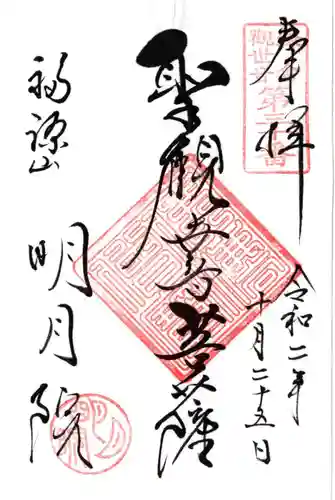 奉拝
観世音第三十番
令和二年
十月二十五日
聖観世音菩薩
福源山
明月院